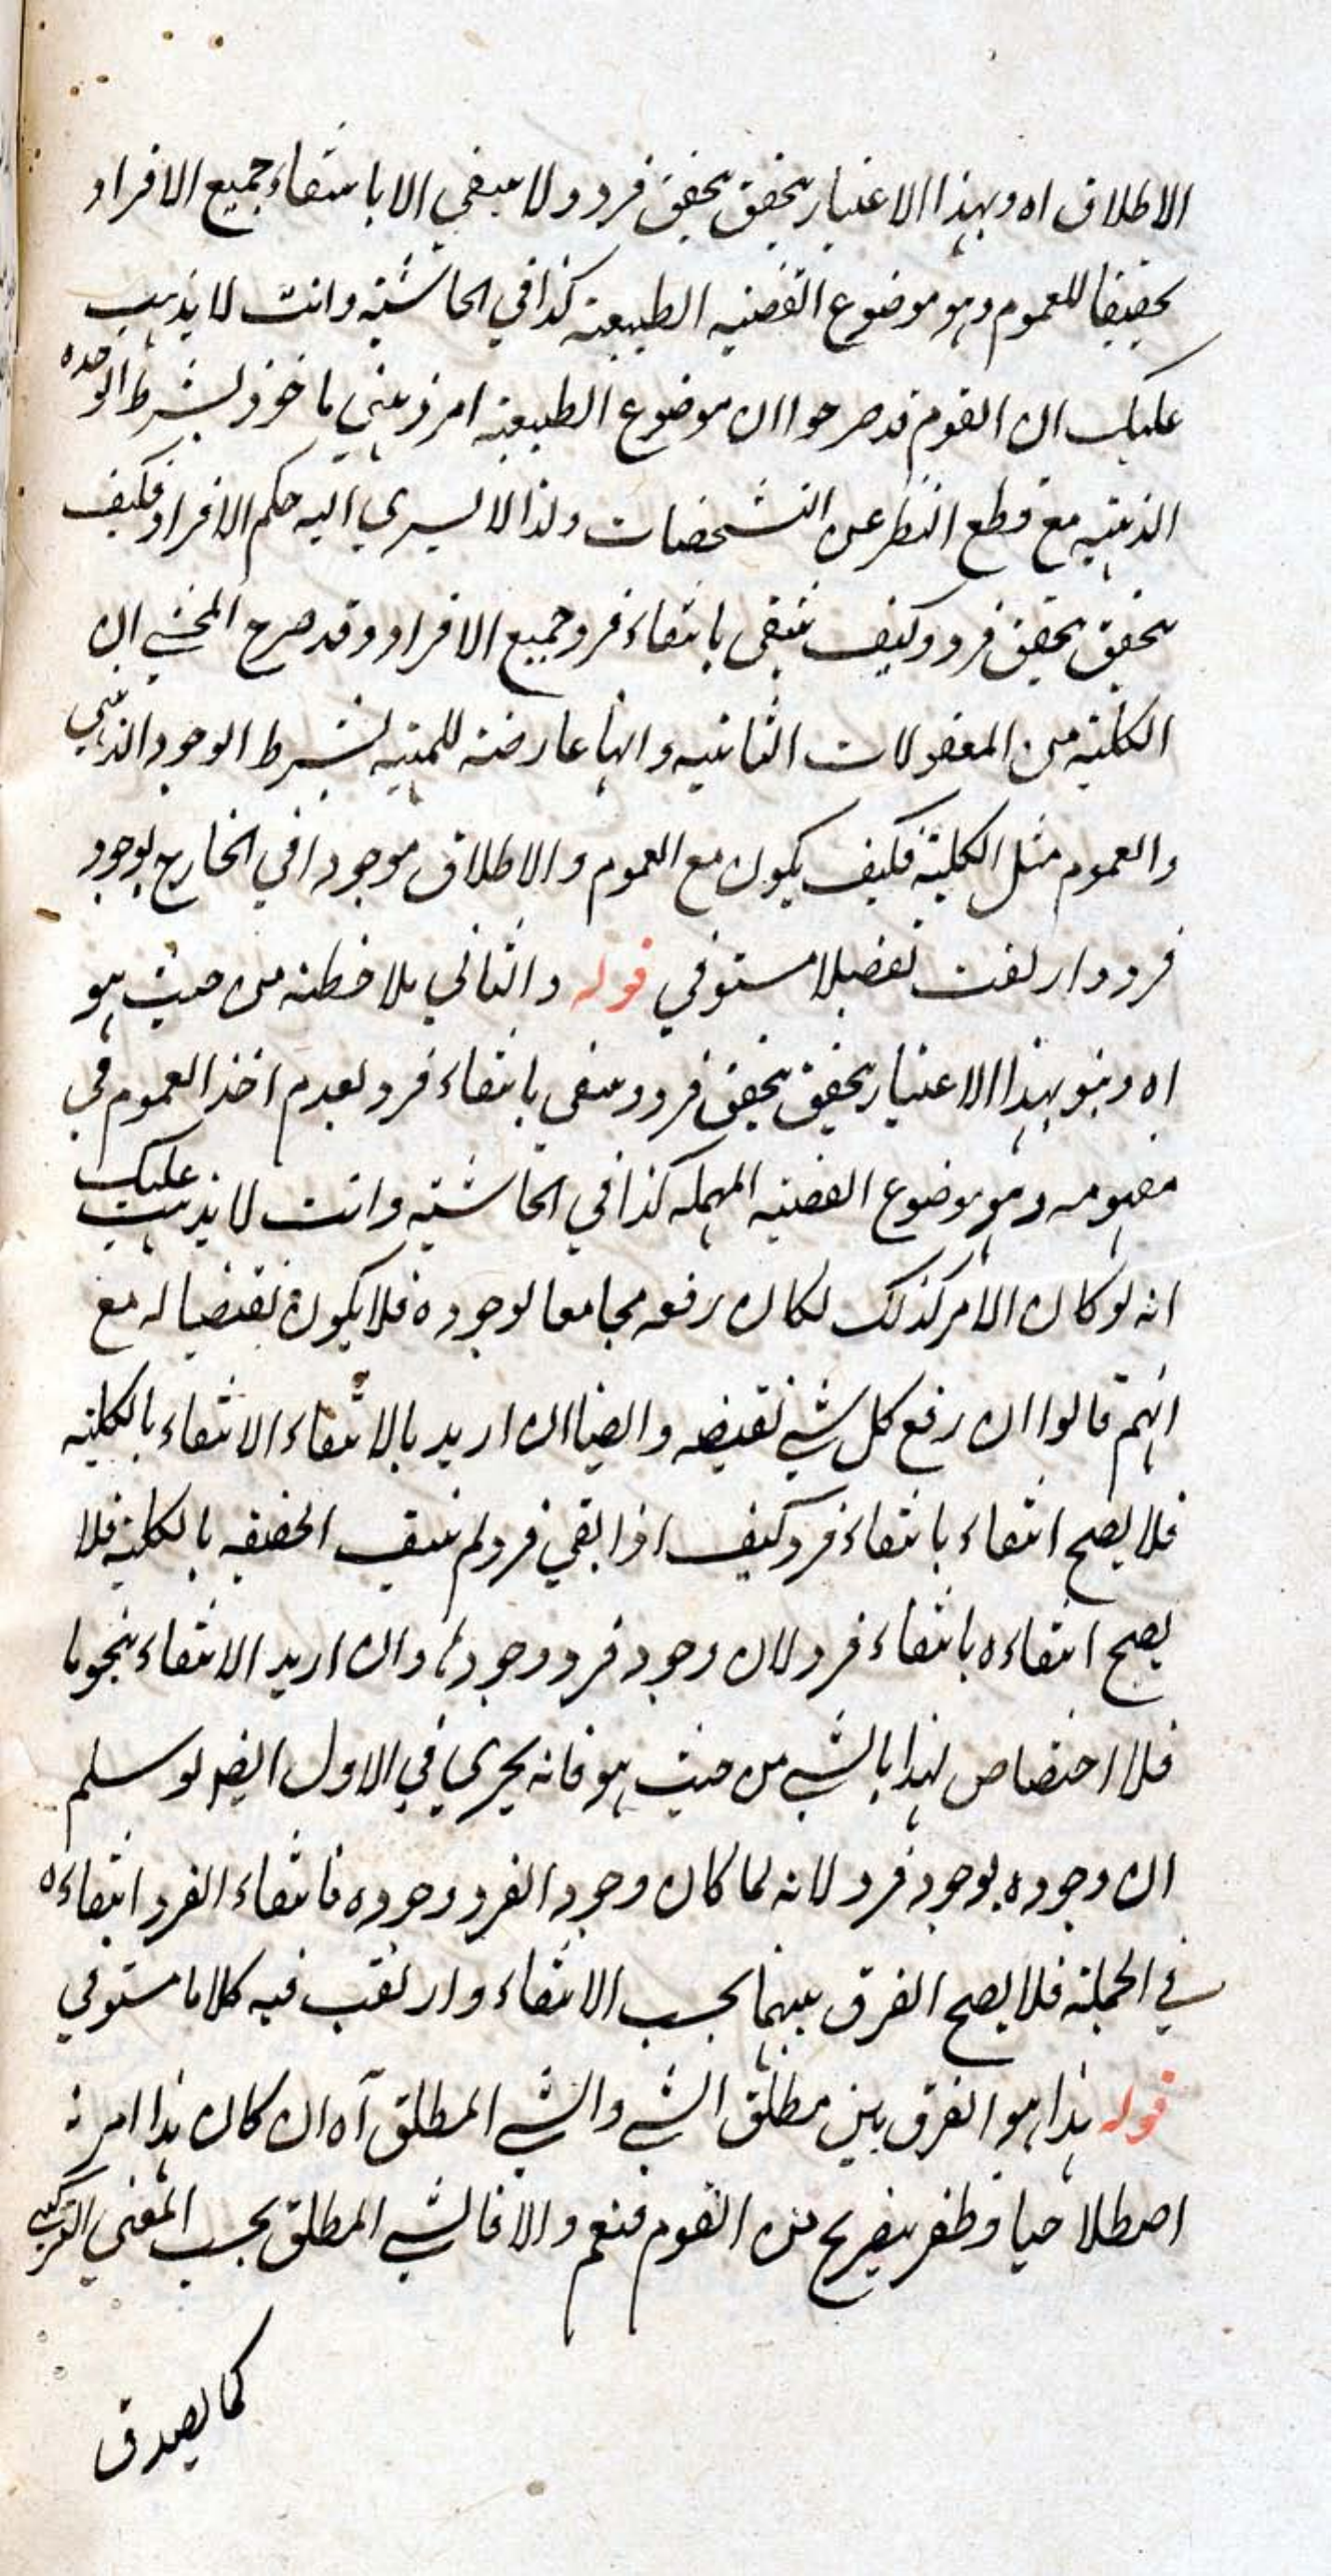 الاطلاق اه وبهذا الاعتبار يتحقق بتحقق فرد ولا ينتفي الا بانتفاء جميع الافراد
تحقيقا للعموم وهو موضوع القضية الطبيعية كذا في الحاشية وانت لا يذهب
عليك ان القوم قد صرحوا ان موضوع الطبيعية امر ذهني ماخوذ بشرط الوحدة
الذهنية مع قطع النظر عن التشخصات ولذا لا يسري اليه حكم الافراد فكيف
يتحقق بتحقق فرد وكيف ينتفي بانتفاء فرد جميع الافراد وقد صرح المحشي ان
الكلية من المعقولات الثانية وانها عارضة للمهية بشرط الوجود الذهني
والعموم مثل الكلية فكيف يكون مع العموم والاطلاق موجودا في الخارج بوجود
فرد وارتقب تفصيلا مستوفي قوله والثاني يلاحظه من حيث هو
اه وهو بهذا الاعتبار يتحقق بتحقق فرد وينتفي بانتفاء فرد لعدم اخذ العموم في
مفهومه وهو موضوع القضية المهملة كذا في الحاشية وانت لا يذهب عليك
انه لو كان الامر كذلك لكان رفعه مجامعا لوجوده فلا يكون نقيضا له مع
انهم قالوا ان رفع كل شي نقيضه وايضا ان اريد بالانتفاء الانتفاء بالكلية
فلا يصح انتفاء بانتفاء فرد كيف اذا بقي فرد لم ينتف الحقيقة بالكلية فلا
يصح انتفاءه بانتفاء فرد لان وجود فرد وجودها وان اريد الانتفاء بنحو ما
فلا اختصاص لهذا بالشي من حيث هو فانه يجري في الاول ايضا لو سلم
ان وجوده بوجود فرد لانه لما كان وجود الفرد وجوده فانتفاء الفرد انتفاءه
في الجملة فلا يصح الفرق بينهما بحسب الانتفاء وارتقب فيه كلاما مستوفي
قوله هذا هو الفرق بين مطلق الشي والشي المطلق آه ان كان هذا امرا
اصطلاحيا وظفر بتصريح من القوم فنعم والا فالشي المطلق بحسب المعني التركيبي
كما يصدق